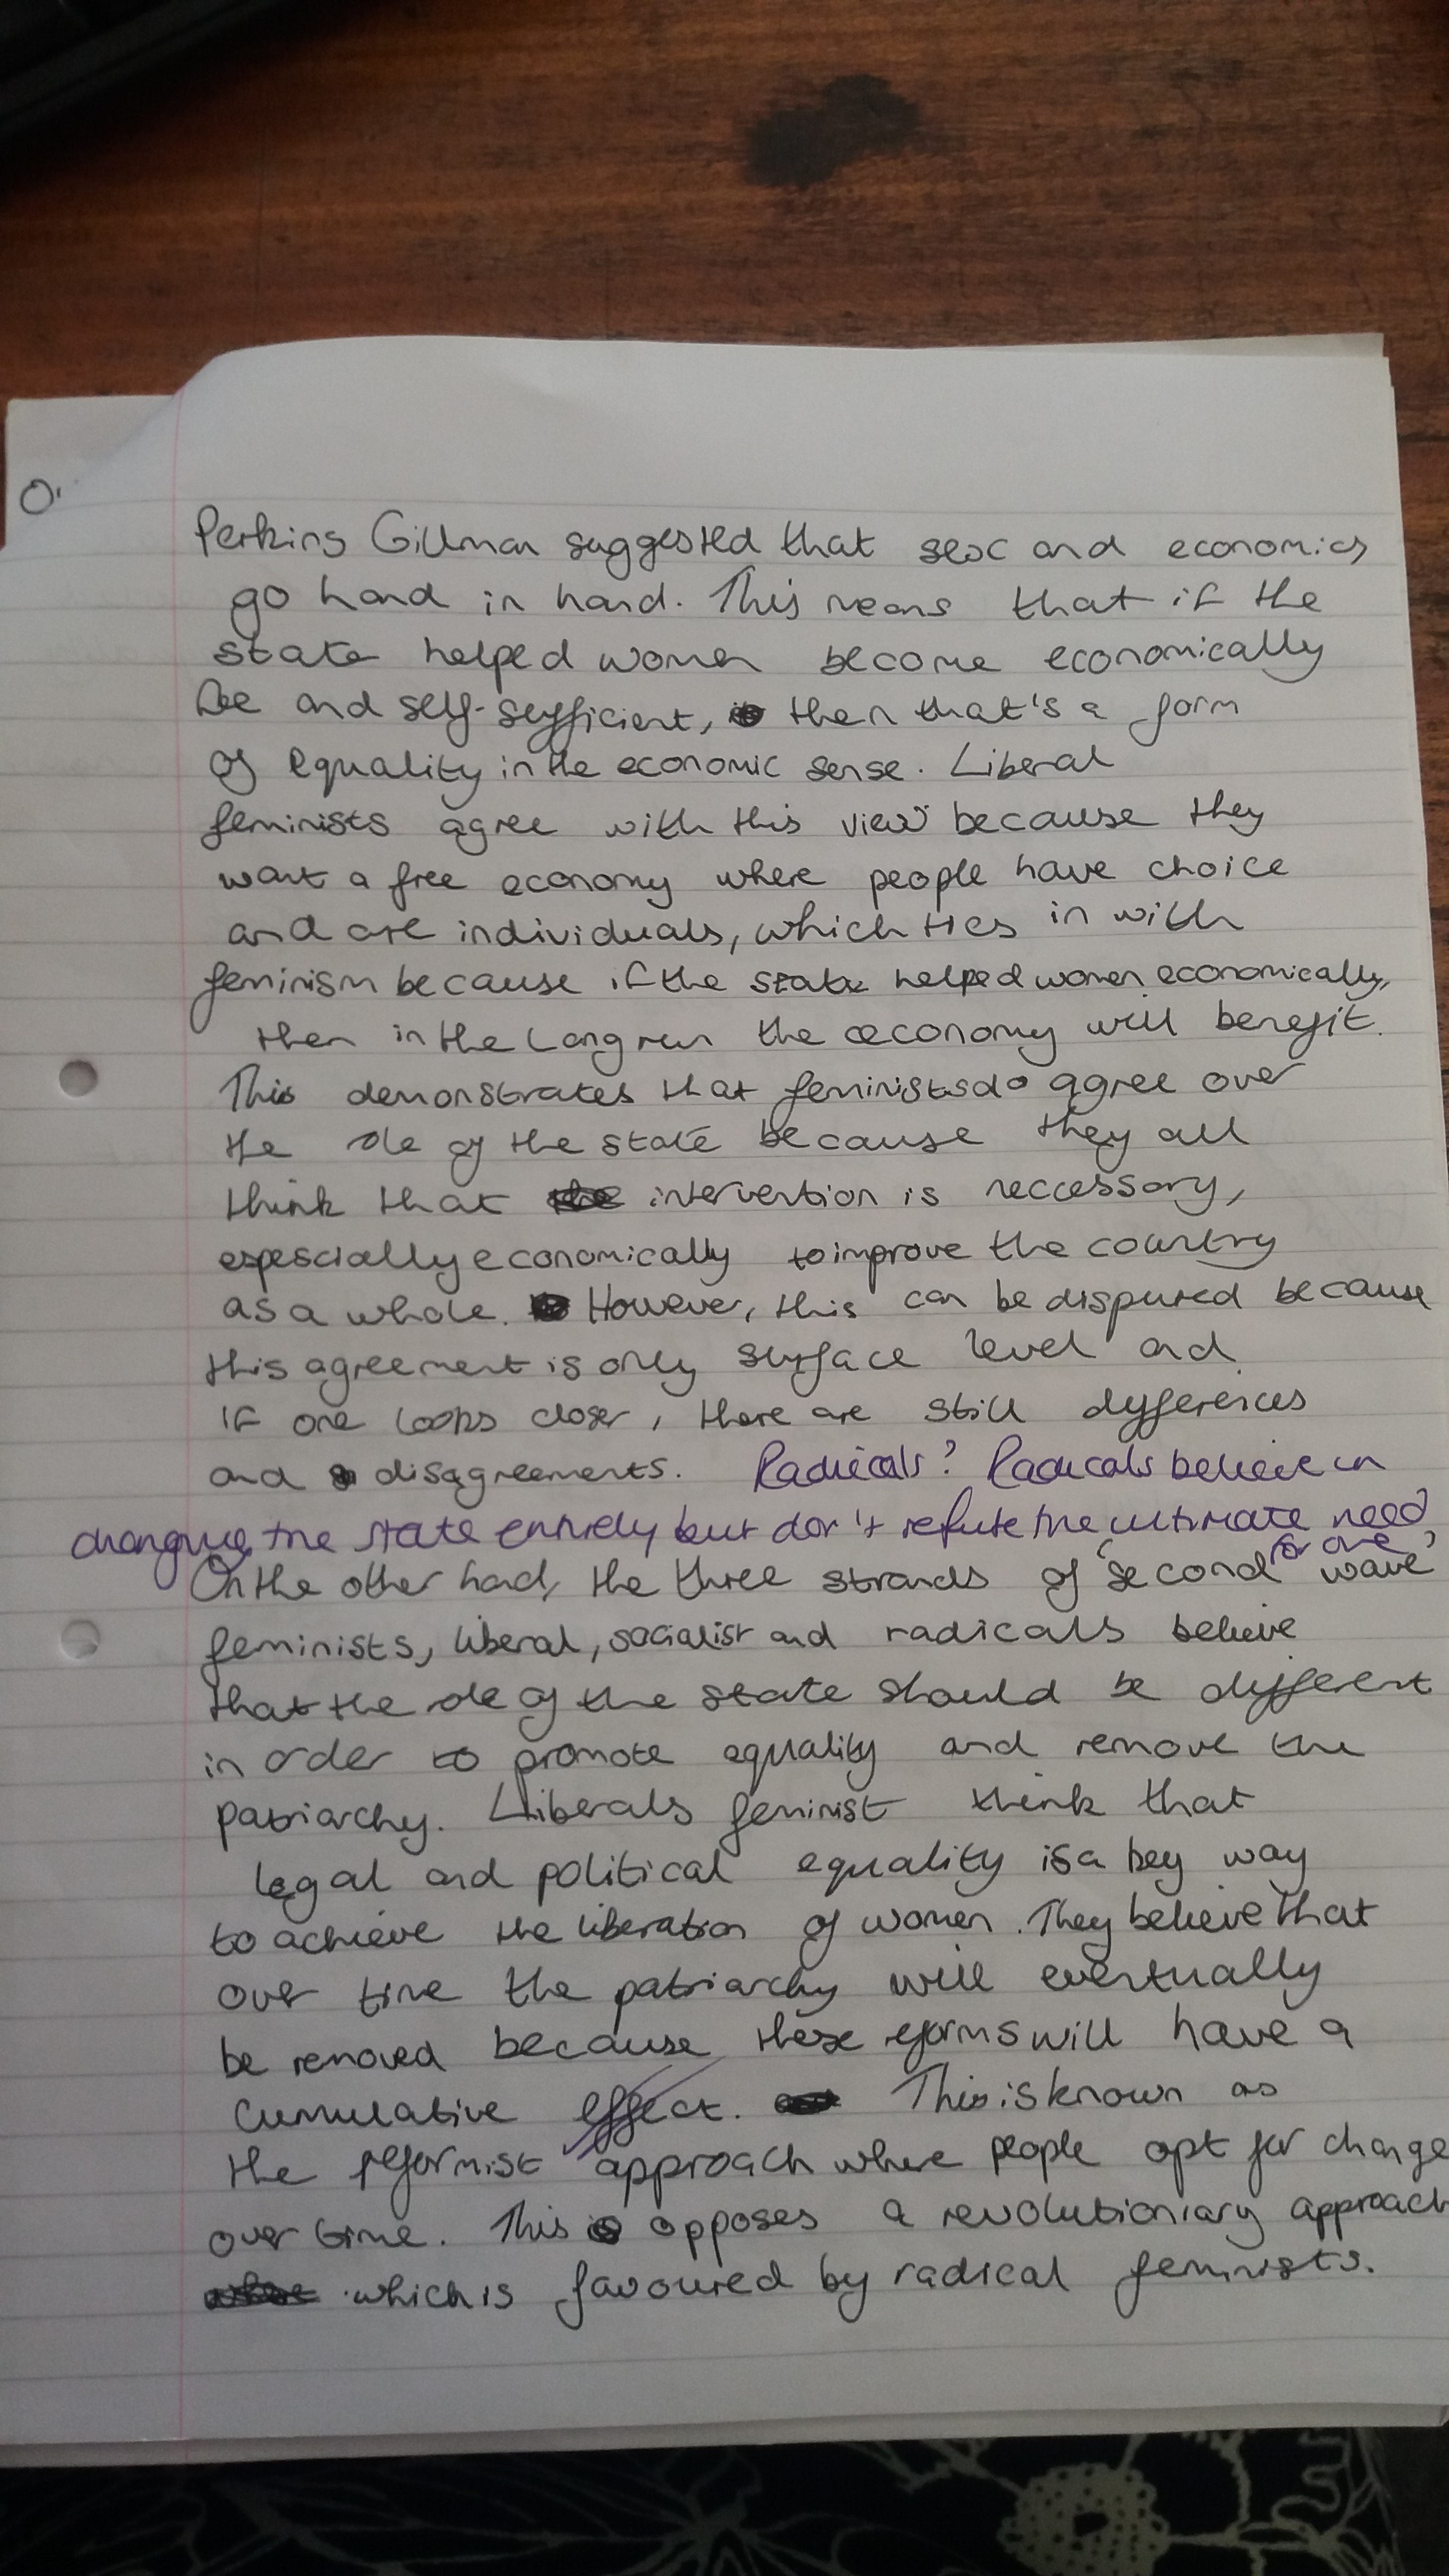 Perkins Gillman suggested that sex and economics
go hand in hand. This means that if the
state helped women become economically
free and self-sufficient, then that's a form
of equality in the economic sense. Liberal
feminists agree with this view because they
want a free economy where people have choice
and are individuals, which ties in with
feminism because if the state helped women economically,
then in the long run the economy will benefit.
This demonstrates that feminists do agree over
the role of the state because they all
think that intervention is neccessary,
espescially economically to improve the country
as a whole. However, this can be disputed because
this agreement is only surface level and
if one looks closer, there are still differences
and disagreements. Radicals? Radicals believe in
changing the state entirely but don't refute the ultimate need
for one
On the other hand, the three strands of 'second wave'
feminists, liberal, socialist and radicals believe
that the role of the state should be different
in order to promote equality and remove the
patriarchy. Liberals feminist think that
legal and political equality is a key way
to achieve the liberation of women. They believe that
over time the patriarchy will eventually
be removed because these reforms will have a
cumulative effect. This is known as
the reformist approach where people opt for change
over time. This opposes a revolutioniary approach
which is favoured by radical feminists.